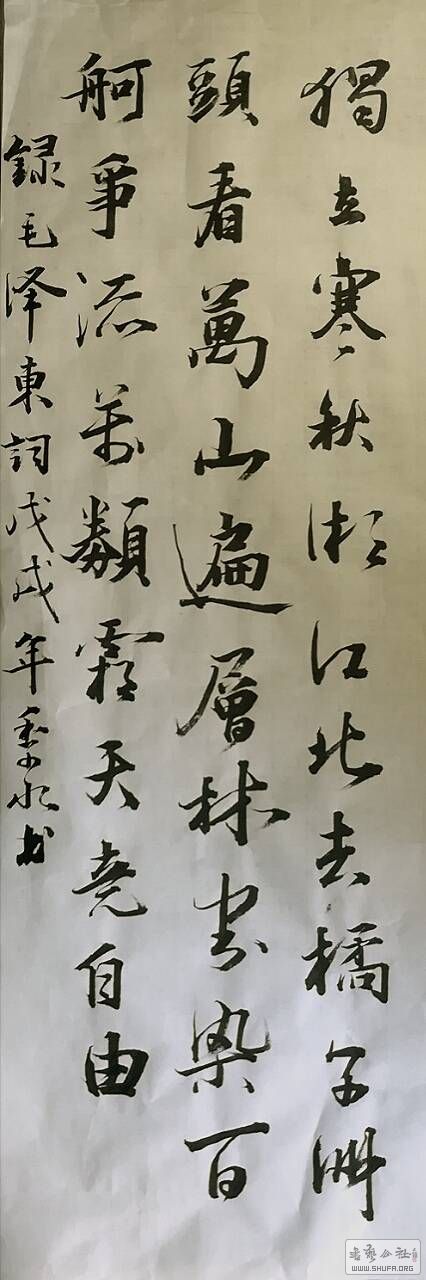 獨立寒秋湘江北去橘子洲
頭看萬山遍層林尽染百
舸爭流萬類霜天竞自由
録毛泽東詞戊戌年书
书艺公社
WWW.SHUFA.ORG